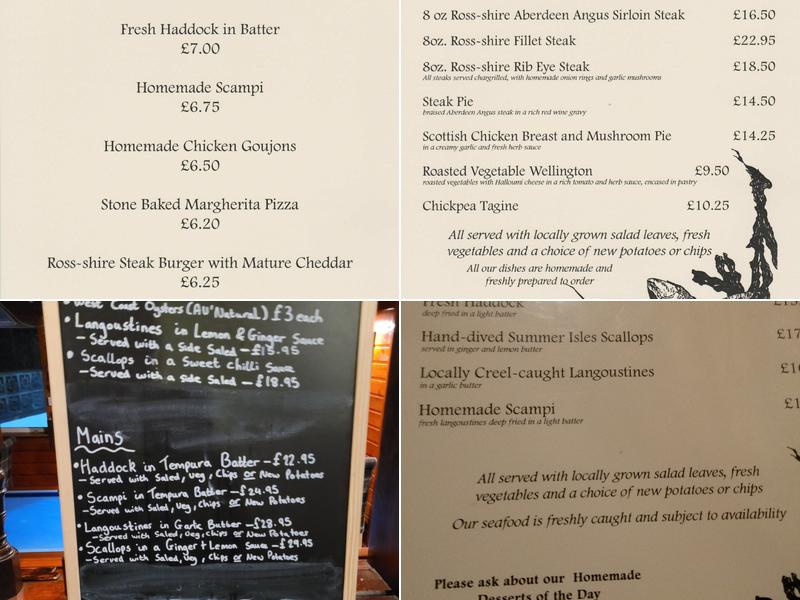 Fresh Haddock in Batter
£7.00
Homemade Scampi
£6.75
Homemade Chicken Goujons
£6.50
Stone Baked Margherita Pizza
£6.20
Ross-shire Steak Burger with Mature Cheddar
£6.25
8 oz Ross-shire Aberdeen Angus Sirloin Steak £16.50
8oz. Ross-shire Fillet Steak £22.95
8oz. Ross-shire Rib Eye Steak £18.50
All steaks served chargrilled, with homemade onion rings and garlic mushrooms
Steak Pie £14.50
braised Aberdeen Angus steak in a rich red wine gravy
Scottish Chicken Breast and Mushroom Pie £14.25
in a creamy garlic and fresh herb sauce
Roasted Vegetable Wellington £9.50
roasted vegetables with Halloumi cheese in a rich tomato and herb sauce, encased in pastry
Chickpea Tagine £10.25
All served with locally grown salad leaves, fresh
vegetables and a choice of new potatoes or chips
All our dishes are homemade and
freshly prepared to order
West Coast Oysters (AU'Natural) £3 each
• Langoustines in Lemon & Ginger Sauce
- Served with a Side Salad - £15.95
• Scallops in a Sweet Chilli Sauce
- Served with a side Salad - £18.95
Mains
• Haddock in Tempura Batter - £22.95
- Served with Salad, Veg, Chips or New Potatoes
• Scampi in Tempura Batter - £24.95
- Served with Salad, Veg, Chips or New Potatoes
• Langoustines in Garlic Butter - £28.95
- Served with Salad, Veg, Chips or New Potatoes
• Scallops in a Ginger + Lemon Sauce - £29.95
- Served with Salad, Veg, Chips or New Potatoes
Fresh Haddock
deep fried in a light batter
Hand-dived Summer Isles Scallops £17
served in ginger and lemon butter
Locally Creel-caught Langoustines
in a garlic butter
Homemade Scampi £1
fresh langoustines deep fried in a light batter
All served with locally grown salad leaves, fresh
vegetables and a choice of new potatoes or chips
Our seafood is freshly caught and subject to availability
Please ask about our Homemade
Desserts of the Day